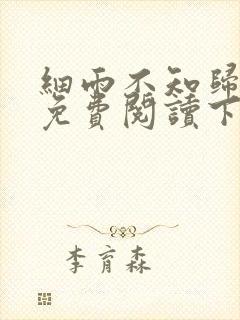 細雨不知歸
免費閱讀下
李育森